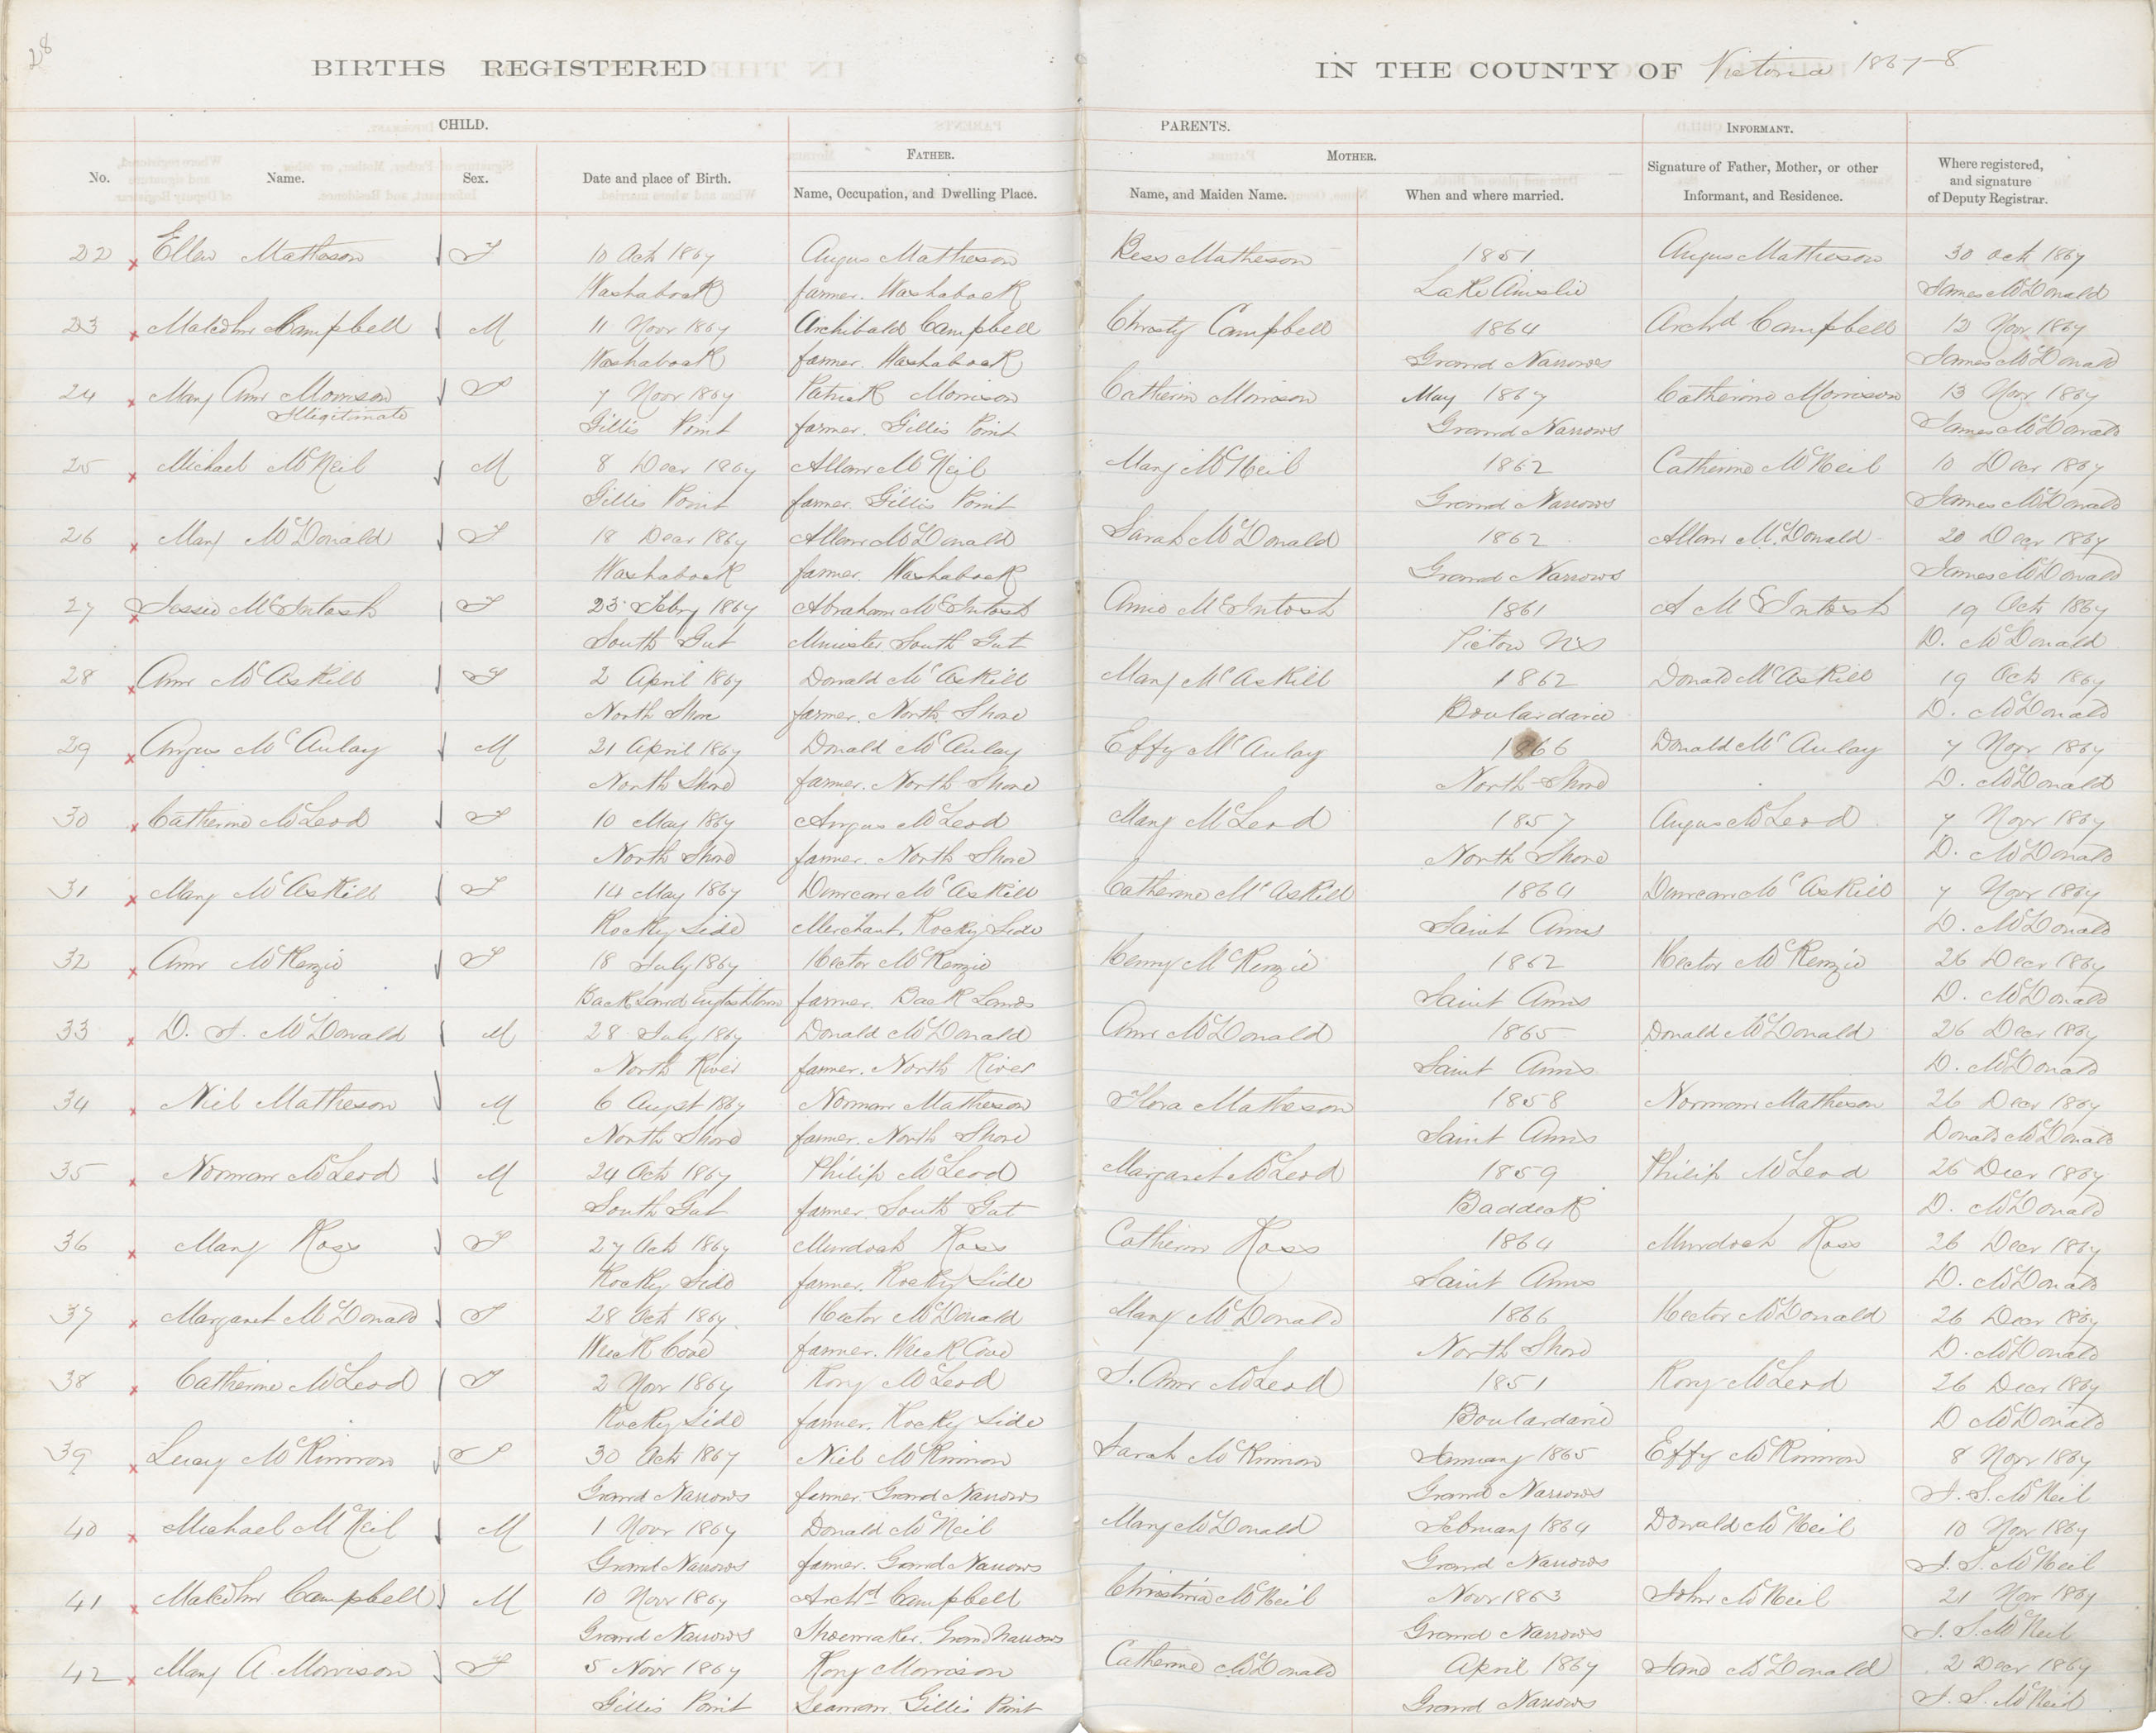 28
BIRTHS REGISTERED
IN THE COUNTY OF Victoria 1867-8
CHILD.
PARENTS.
INFORMANT.
FATHER.
MOTHER.
No.
Name.
Sex.
Date and place of Birth.
Name, Occupation, and Dwelling Place.
Name, and Maiden Name.
When and where married.
Signature of Father, Mother, or other
Informant, and Residence.
Where registered,
and signature
of Deputy Registrar.
22 Ellen Matheson F 10 Oct 1867 Angus Matheson Bess Matheson 1851 Angus Matheson 30 Oct 1867
Washaback farmer. Washaback Lake Ainslie James McDonald
23 Malcolm Campbell M 11 Novr 1867 Archibald Campbell Christy Campbell 1864 Archd Campbell 12 Novr 1867
Washaback farmer. Washaback Grand Narrows James McDonald
24 Mary Ann Morrison F 7 Novr 1867 Patrick Morrison Catherin Morrison May 1867 Catherine Morrison 13 Novr 1867
Illigitimate Gillis Point farmer. Gillis Point Grand Narrows James McDonald
25 Michael McNeil M 8 Decr 1867 Allan McNeil Mary McNeil 1862 Catherine McNeil 10 Decr 1867
Gillis Point farmer. Gillis Point Grand Narrows James McDonald
26 Mary McDonald F 18 Decr 1867 Allan McDonald Sarah McDonald 1862 Allan McDonald 20 Decr 1867
Washaback farmer. Washaback Grand Narrows James McDonald
27 Jessie McIntosh F 23 Feby 1867 Abraham McIntosh Annie McIntosh 1861 A McIntosh 19 Octr 1867
South Gut Minister South Gut Pictou NS D. McDonald
28 Ann McAskill F 2 April 1867 Donald McAskill Mary McAskill 1862 Donald McAskill 19 Octr 1867
North Shore farmer. North Shore Boulardarie D. McDonald
29 Angus McAulay M 21 April 1867 Donald McAulay Effy McAulay 1866 Donald McAulay 7 Novr 1867
North Shore farmer. North Shore North Shore D. McDonald
30 Catherine McLeod F 10 May 1867 Angus McLeod Mary McLeod 1857 Angus McLeod 7 Novr 1867
North Shore farmer. North Shore North Shore D. McDonald
31 Mary McAskill F 14 May 1867 Duncan McAskill Catherine McAskill 1864 Duncan McAskill 7 Novr 1867
Rocky Side Merchant. Rocky Side Saint Anns D. McDonald
32 Ann McKenzie F 18 July 1867 Hector McKenzie Henny McKenzie 1862 Hector McKenzie 26 Decr 1867
Back Land Englishtown farmer. Back Lands Saint Anns D. McDonald
33 D. J. McDonald M 28 July 1867 Donald McDonald Ann McDonald 1865 Donald McDonald 26 Decr 1867
North River farmer. North River Saint Anns D. McDonald
34 Niel Matheson M 6 Augst 1867 Norman Matheson Flora Matheson 1858 Norman Matheson 26 Decr 1867
North Shore farmer. North Shore Saint Anns Donald McDonald
35 Norman McLeod M 24 Octr 1867 Philip McLeod Margaret McLeod 1859 Philip McLeod 26 Decr 1867
South Gut farmer. South Gut Baddeck D. McDonald
36 Mary Ross F 27 Octr 1867 Murdoch Ross Catherin Ross 1864 Murdoch Ross 26 Decr 1867
Rocky Side farmer. Rocky Side Saint Anns D. McDonald
37 Margaret McDonald F 28 Octr 1867 Hector McDonald Mary McDonald 1866 Hector McDonald 26 Decr 1867
Wreck Cove farmer. Wreck Cove North Shore D. McDonald
38 Catherine McLeod F 2 Novr 1867 Rory McLeod J. Ann McLeod 1851 Rory McLeod 26 Decr 1867
Rocky Side farmer. Rocky Side Boulardarie D McDonald
39 Lucy McKinnon F 30 Octr 1867 Niel McKinnon Sarah McKinnon January 1865 Effy McKinnon 8 Novr 1867
Grand Narrows farmer. Grand Narrows Grand Narrows J. S. McNeil
40 Michael McNeil M 1 Novr 1867 Donald McNeil Mary McDonald February 1864 Donald McNeil 10 Novr 1867
Grand Narrows farmer. Grand Narrows Grand Narrows J. S. McNeil
41 Malcolm Campbell M 10 Novr 1867 Archd Campbell Christina McNeil Novr 1863 John McNeil 21 Novr 1867
Grand Narrows Shoemaker. Grand Narrows Grand Narrows J. S. McNeil
42 Mary A. Morrison F 5 Novr 1867 Rory Morrison Catherine McDonald April 1867 McDonald 2 Decr 1867
Gillis Point Seaman. Gillis Point Grand Narrows J. S. McNeil